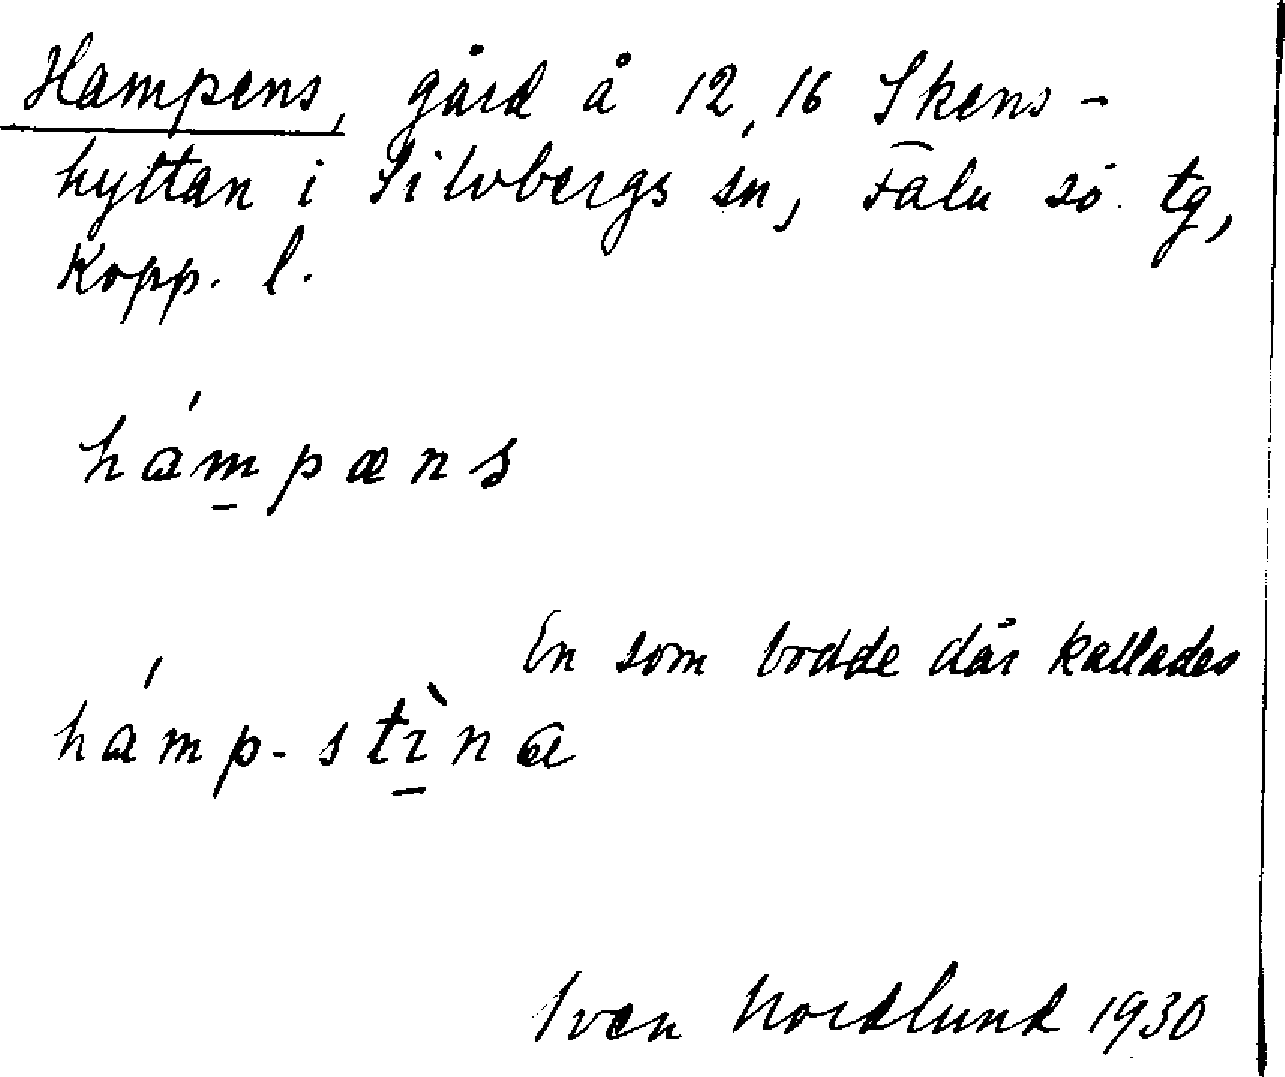 Hampens, gård å 12, 16 Skens-
hyttan i Silvbergs sn, Falu sö. tg,
Kopp. l.
hámpæns
En som bodde där kallades
hámp-stìna
Sven Nordlund 1930